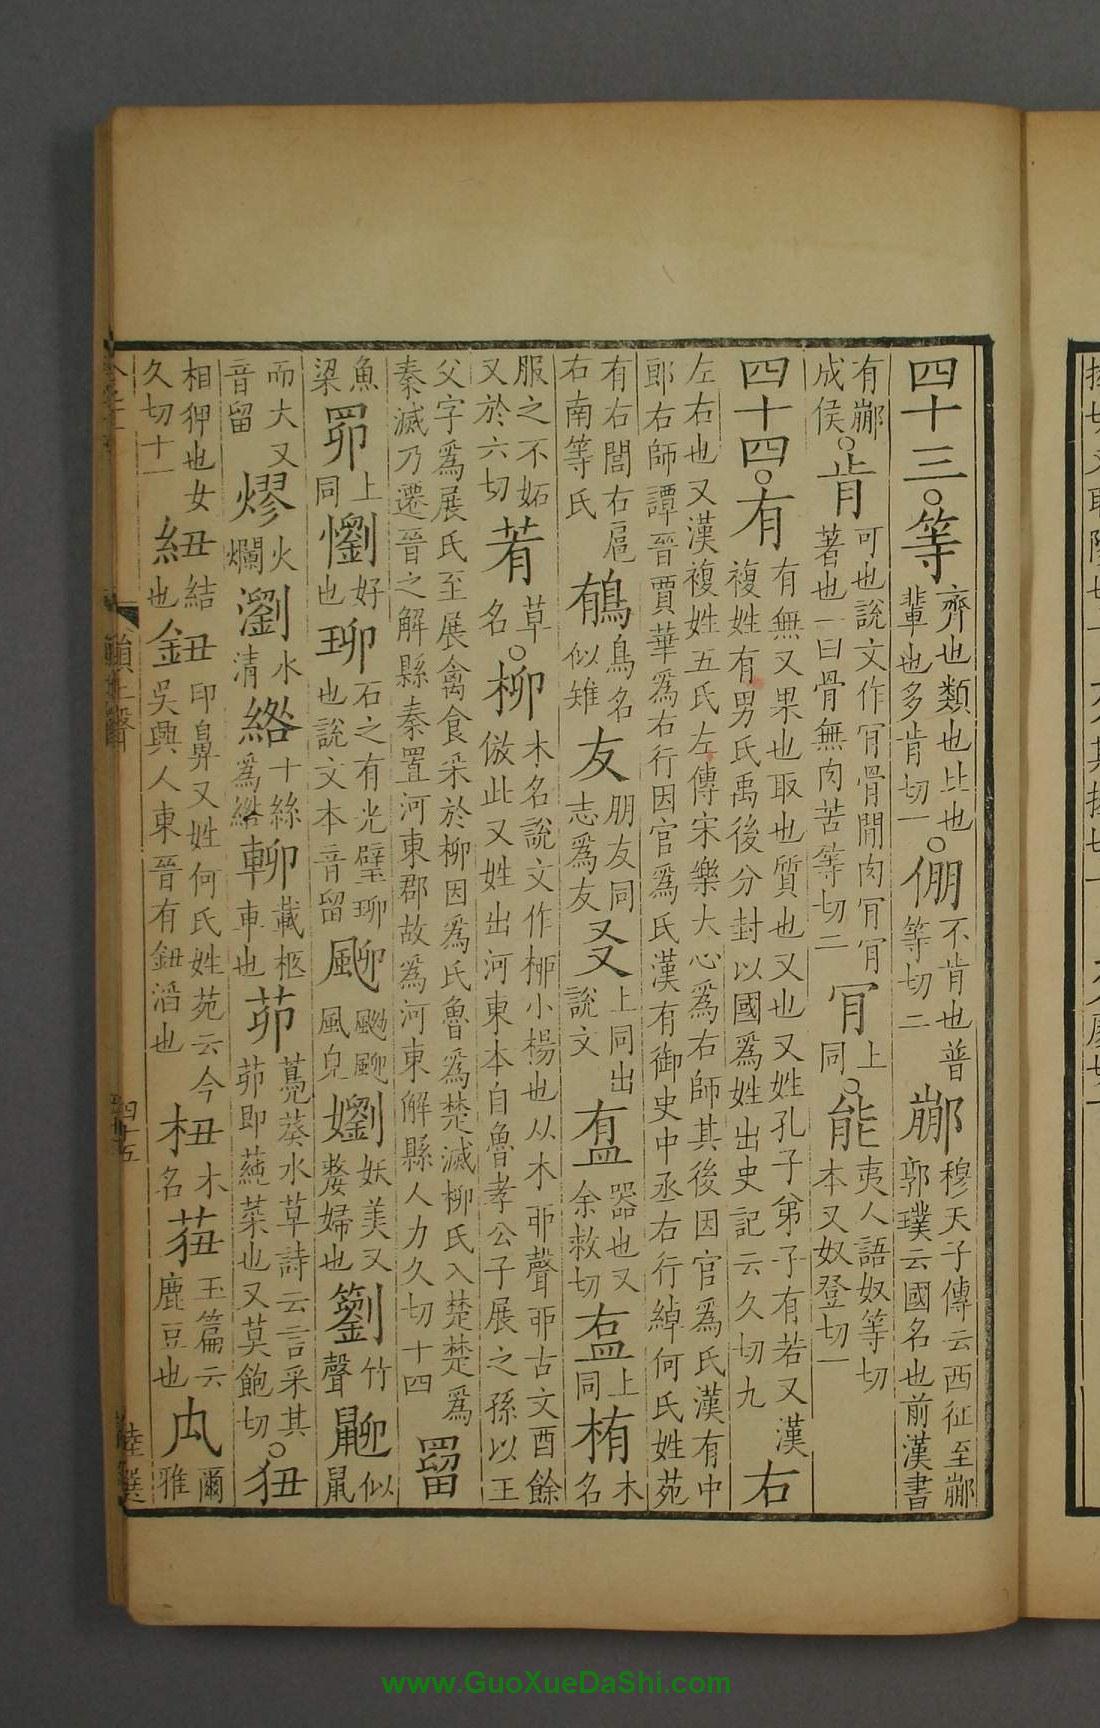 四十三○等齊也類也比也輩也多肯切一○倗不肯也普等切二𨞙穆天子傳云西征至𨞙郭璞云國名也前漢書
有𨞙成侯○肯可也說文作肎骨閒肉肎肎著也一曰骨無肉苦等切二肎上同○能夷人語奴等切本又奴登切一
四十四○有有無又果也取也質也又也又姓孔子弟子有若又漢複姓有男氏禹後分封以國爲姓出史記云久切九右
左右也又漢複姓五氏左傳宋樂大心爲右師其後因官爲氏漢有中郎右師譚晉賈華爲右行因官爲氏漢有御史中丞右行綽何氏姓苑
有右閭右扈右南等氏䳑鳥名似雉友朋友同志爲友㕛上同出說文㿽器也又余救切盓上同栯木名
服之不妬又於六切蓩草名○柳木名說文作桺小楊也从木丣聲丣古文酉餘倣此又姓出河東本自魯孝公子展之孫以王
父字爲展氏至展禽食采於柳因爲氏魯爲楚滅柳氏入楚楚爲秦滅乃遷晉之解縣秦置河東郡故爲河東解縣人力久切十四罶
魚梁罶上同懰好也珋石之有光璧珋也說文本音留䬟飉䬟風皃嬼妖美又嫠婦也𥷔竹聲䶉似鼠
而大又音留熮火爛瀏水清綹十絲爲綹𨋖載柩車也茆鳧葵水草詩云言采其茆即蓴菜也又莫飽切○狃
相狎也女久切十一紐結也鈕印鼻又姓何氏姓苑云今吳興人東晉有鈕滔也杻木名莥玉篇云鹿豆也厹爾雅
韻上聲
四十五